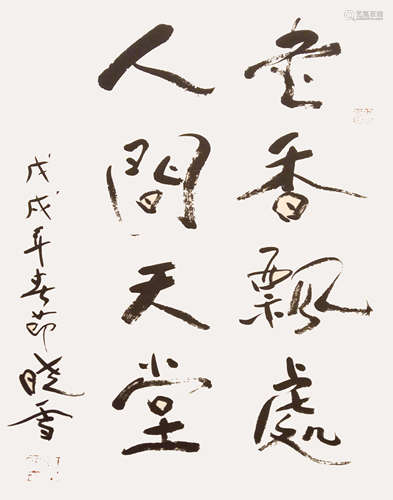 書香飄處
人間天堂
戊戌年春節晓雪